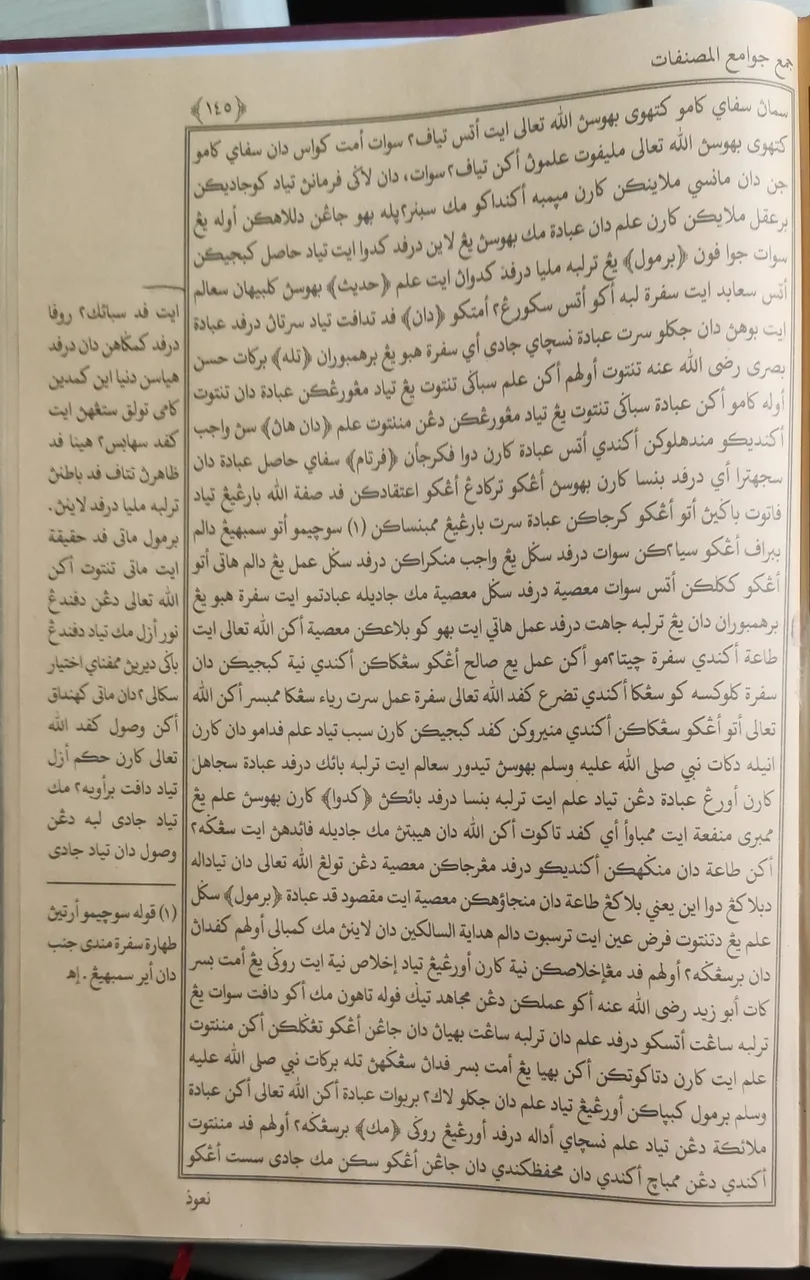 جمع جوامع المصنفات
﴿١٤٥﴾
سمان سفاي كامو كتهوى بهوسن الله تعالى ايت أتس تياف؟ سوات أمت كواس دان سفاي كامو
كتهوى بهوسن الله تعالى مليفوت علمون أكن تياف؟ سوات، دان لاكى فرمانن تياد كوجاديكن
جن دان مانسي ملاينكن كارن ميمبه أكنداكو مك سبنر؟ پله بهو جاڠن دللاهكن أوله يڠ
برعقل ملايكن كارن علم دان عبادة مك بهوسن يڠ لاين درفد كدوا ايت تياد حاصل كبجيكن
سوات جوا فون ﴿برمول﴾ يڠ ترلبه مليا درفد كدوان ايت علم ﴿حديث﴾ بهوسن كلبيهان سعالم
أتس سعابد ايت سفرة لبه أكو أتس سكورڠ؟ أمتكو ﴿دان﴾ فد تدافت تياد سرتان درفد عبادة
ايت بوهن دان جكلو سرت عبادة نسچاي جادى أي سفرة هبو يڠ برهمبوران ﴿تله﴾ بركات حسن
بصرى رضى الله عنه تنتوت أولهم أكن علم سباكى تنتوت يڠ تياد مڠورڠكن عبادة دان تنتوت
أوله كامو أكن عبادة سباكى تنتوت يڠ تياد مڠورڠكن دڠن مننتوت علم ﴿دان هان﴾ سن واجب
أكنديكو مندهلوكن أكندي أتس عبادة كارن دوا فكرجأن ﴿فرتام﴾ سفاي حاصل عبادة دان
سجهترا أي درفد بنسا كارن بهوسن أڠكو تركادڠ أڠكو اعتقادكن فد صفة الله بارڠيڠ تياد
فاتوت باكين أتو أڠكو كرجاكن عبادة سرت بارڠيڠ ممبنساكن (١) سوچيمو أتو سمبهيڠ دالم
ببراف أڠكو سيا؟كن سوات درفد سكل يڠ واجب منكراكن درفد سكل عمل يڠ دالم هاتى أتو
أڠكو ككلكن أتس سوات معصية درفد سكل معصية مك جاديله عبادتمو ايت سفرة هبو يڠ
برهمبوران دان يڠ ترلبه جاهت درفد عمل هاتي ايت بهو كو بلاعكن معصية أكن الله تعالى ايت
طاعة أكندي سفرة چيتا؟مو أكن عمل يع صالح أڠكو سڠكاكن أكندي نية كبجيكن دان
سفرة كلوكسه كو سڠكا أكندي تضرع كفد الله تعالى سفرة عمل سرت رياء سڠكا ممبسر أكن الله
تعالى أتو أڠكو سڠكاكن أكندي منيروكن كفد كبجيكن كارن سبب تياد علم فدامو دان كارن
انيله دكات نبي صلى الله عليه وسلم بهوسن تيدور سعالم ايت ترلبه بائك درفد عبادة سجاهل
كارن أورڠ عبادة دڠن تياد علم ايت ترلبه بنسا درفد بائكن ﴿كدوا﴾ كارن بهوسن علم يڠ
ممبرى منفعة ايت ممباوأ أي كفد تاكوت أكن الله دان هيبتن مك جاديله فائدهن ايت سڠكه؟
أكن طاعة دان منكهكن أكنديكو درفد مڠرجاكن معصية دڠن تولڠ الله تعالى دان تياداله
دبلاكڠ دوا اين يعني بلاكڠ طاعة دان منجاؤهكن معصية ايت مقصود قد عبادة ﴿برمول﴾ سكل
علم يڠ دتنتوت فرض عين ايت ترسبوت دالم هداية السالكين دان لاينن مك كمبالى أولهم كفدان
دان برسڠكه؟ أولهم فد مڠإخلاصكن نية كارن أورڠيڠ تياد إخلاص نية ايت روكى يڠ أمت بسر
كات أبو زيد رضى الله عنه أكو عملكن دڠن مجاهد تيك فوله تاهون مك أكو دافت سوات يڠ
ترلبه ساڠت أتسكو درفد علم دان ترلبه ساڠت بهيان دان جاڠن أڠكو تڠكلكن أكن مننتوت
علم ايت كارن دتاكوتكن أكن بهيا يڠ أمت بسر فدان سڠكهن تله بركات نبي صلى الله عليه
وسلم برمول كبپاكن أورڠيڠ تياد علم دان جكلو لاك؟ بربوات عبادة أكن الله تعالى أكن عبادة
ملائكة دڠن تياد علم نسچاي أداله درفد أورڠيڠ روكى ﴿مك﴾ برسڠكه؟ أولهم فد مننتوت
أكندي دڠن ممباچ أكندي دان محفظكندي دان جاڠن أڠكو سكن مك جادى سست أڠكو
نعوذ
ايت فد سباتڬ؟ روفا
درفد كمكاهن دان درفد
هياسن دنيا اين كمدين
كامى تولق ستڠهن ايت
كفد سهابس؟ هينا فد
ظاهرن تتاف فد باطنن
ترلبه مليا درفد لاينن.
برمول ماتى فد حقيقة
ايت ماتى تنتوت أكن
الله تعالى دڠن دفندڠ
نور أزل مك تياد دفندڠ
باكى ديرين ممفناي اختيار
سكالى؟ دان ماتى كهنداق
أكن وصول كفد الله
تعالى كارن حكم أزل
تياد دافت برأوبه؟ مك
تياد جادى لبه دڠن
وصول دان تياد جادى
(١) قوله سوچيمو أرتين
طهارة سفرة مندى جنب
دان أير سمبهيڠ. إهـ